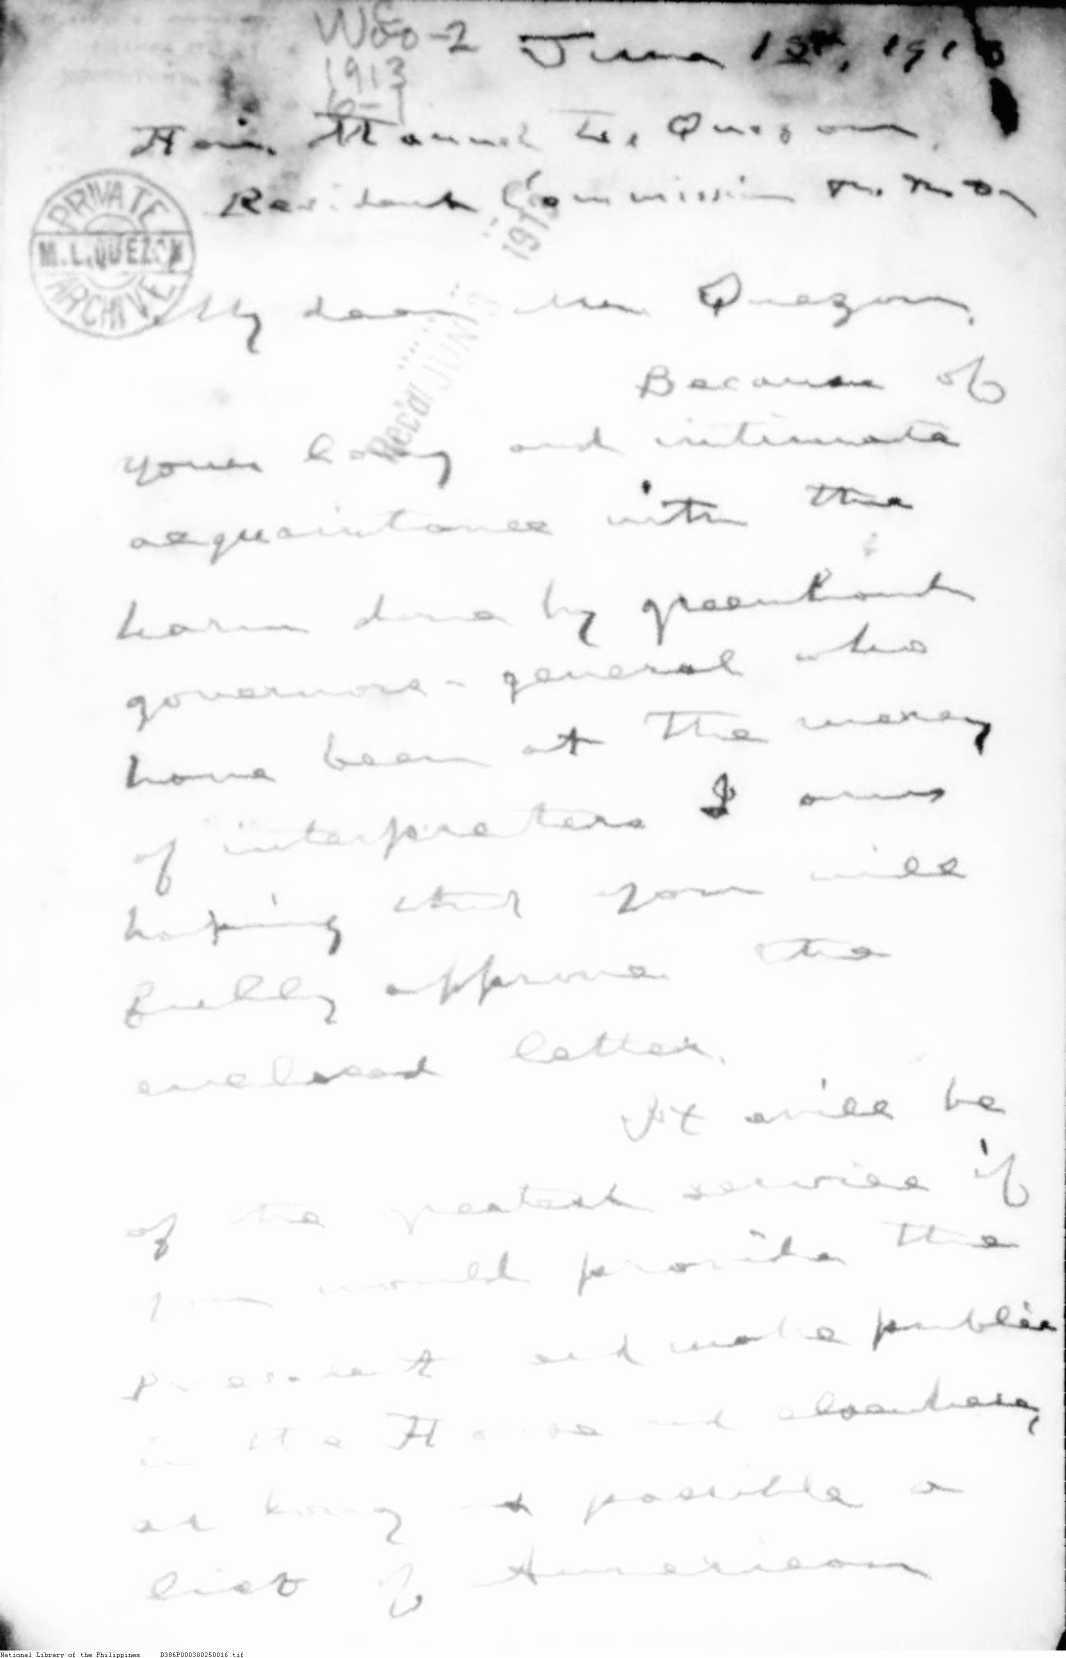 W&o-2 June 1st, 1913
1913
6-1
Hon. Manuel L. Quezon,
Resident Commission
PRIVATE
M.L.QUEZON
ARCHIVE
Rec'd JUN 1913
My dear Mr. Quezon,
Because of
your long and intimate
acquaintance with the
harm done by greenhand
governors-general who
have been at the mercy
of interpreters I am
hoping that you will
fully approve the
enclosed letter.
It will be
of the greatest service if
you would provide the
president and make public
in the House and elsewhere,
as long as possible a
list of American
National Library of the Philippines D386P000380250016.tif